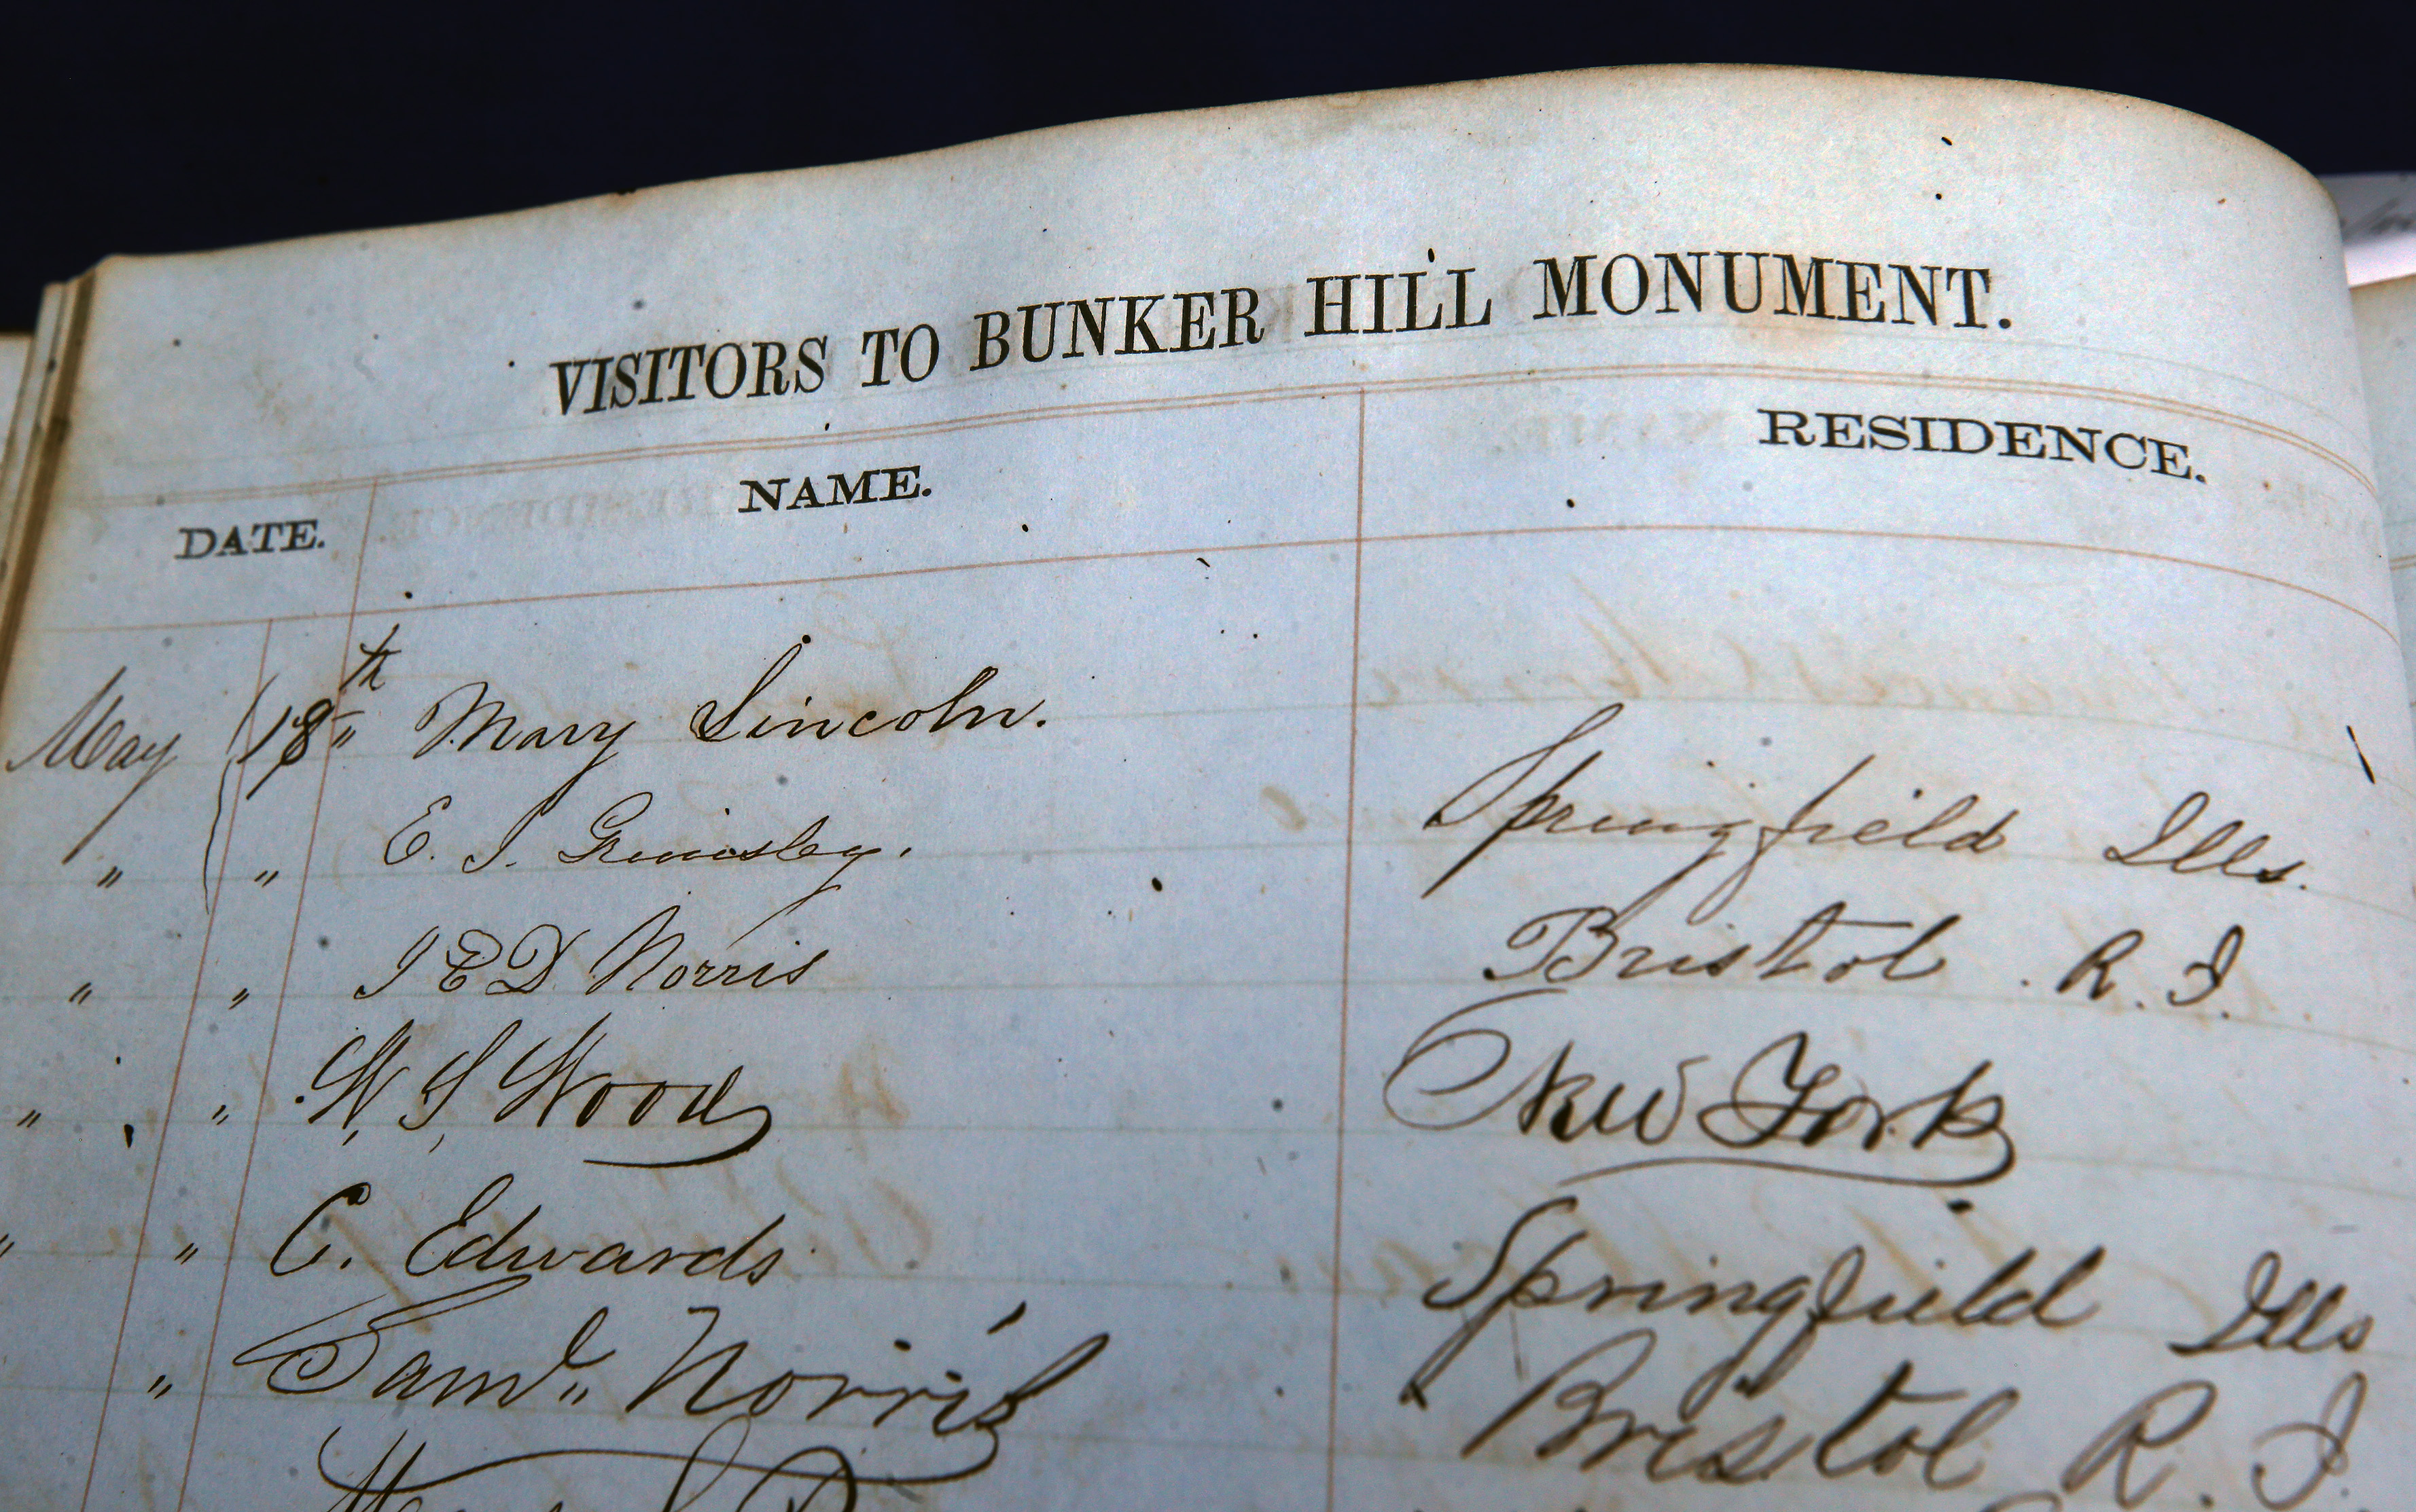 VISITORS TO BUNKER HILL MONUMENT.
DATE. NAME. RESIDENCE.
May 18th Mary Lincoln.
" " E. J. Grimsley. Springfield Ills.
" " J E D Norris Bristol R. I.
" " W, S, Wood New York
" " C. Edwards Springfield Ills
" Saml. Norris Bristol R. I.